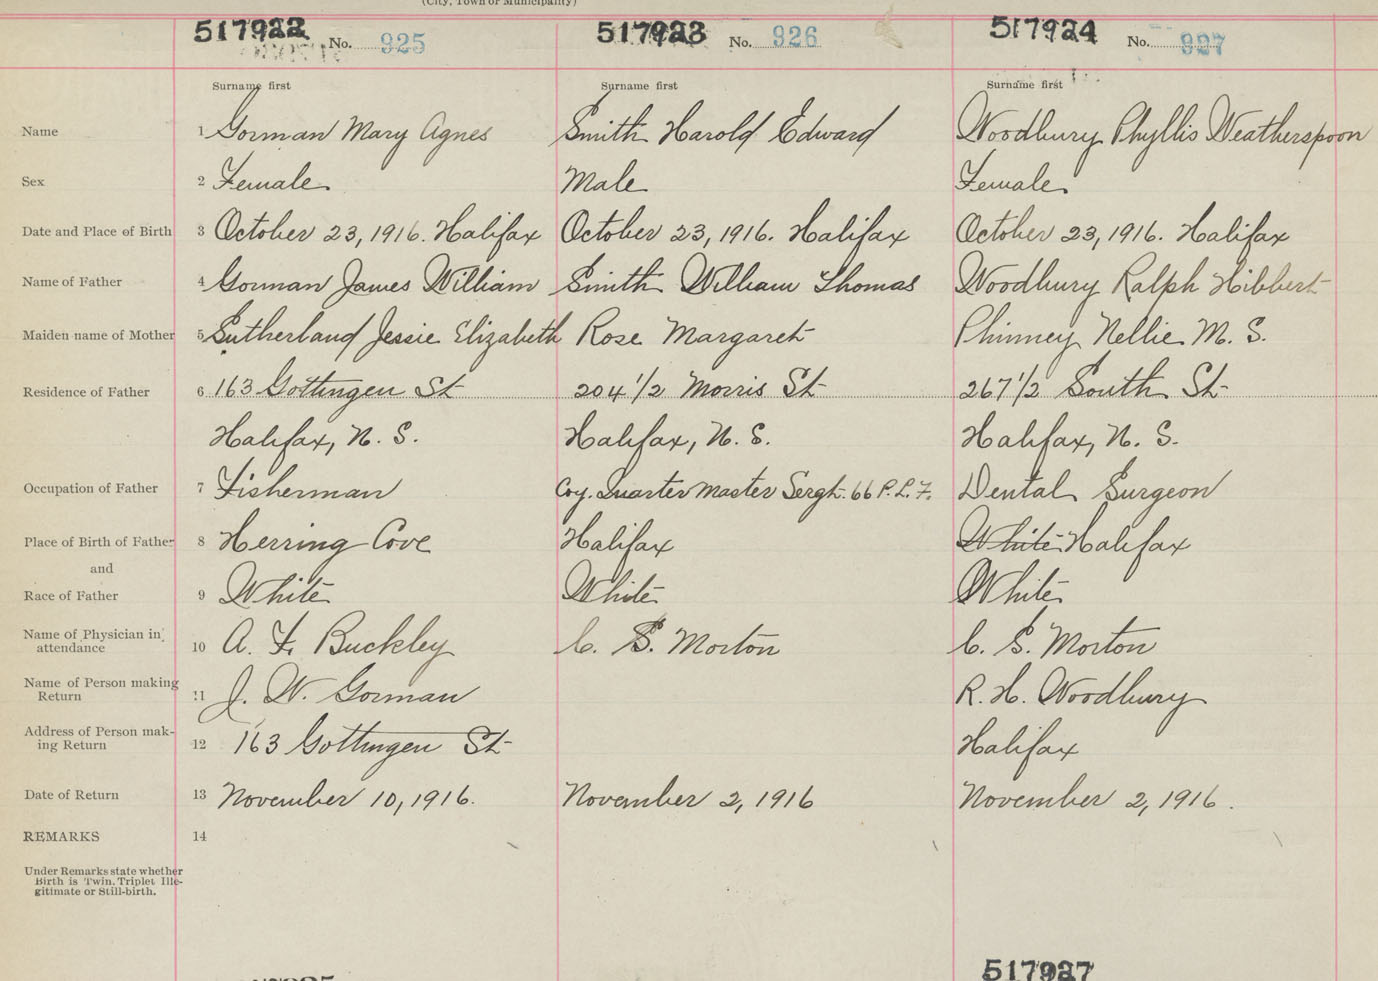 (City, Town or Municipality)
517922 No. 925 517923 No. 926 517924 No. 927
Surname first Surname first Surname first
Name 1 Gorman Mary Agnes Smith Harold Edward Woodbury Phyllis Weatherspoon
Sex 2 Female Male Female
Date and Place of Birth 3 October 23, 1916. Halifax October 23, 1916. Halifax October 23, 1916. Halifax
Name of Father 4 Gorman James William Smith William Thomas Woodbury Ralph Hibbert
Maiden name of Mother 5 Sutherland Jessie Elizabeth Rose Margaret Phinney Nellie M. S.
Residence of Father 6 163 Gottingen St 204 1/2 Morris St 267 1/2 South St
Halifax, N. S. Halifax, N. S. Halifax, N. S.
Occupation of Father 7 Fisherman Coy. Quarter Master Sergt. 66 P. L. F. Dental Surgeon
Place of Birth of Father 8 Herring Cove Halifax White Halifax
and
Race of Father 9 White White White
Name of Physician in
attendance 10 A. F. Buckley C. S. Morton C. S. Morton
Name of Person making
Return 11 J. W. Gorman R. H. Woodbury
Address of Person mak-
ing Return 12 163 Gottingen St Halifax
Date of Return 13 November 10, 1916. November 2, 1916 November 2, 1916.
REMARKS 14
Under Remarks state whether
Birth is Twin, Triplet Ille-
gitimate or Still-birth.
517927